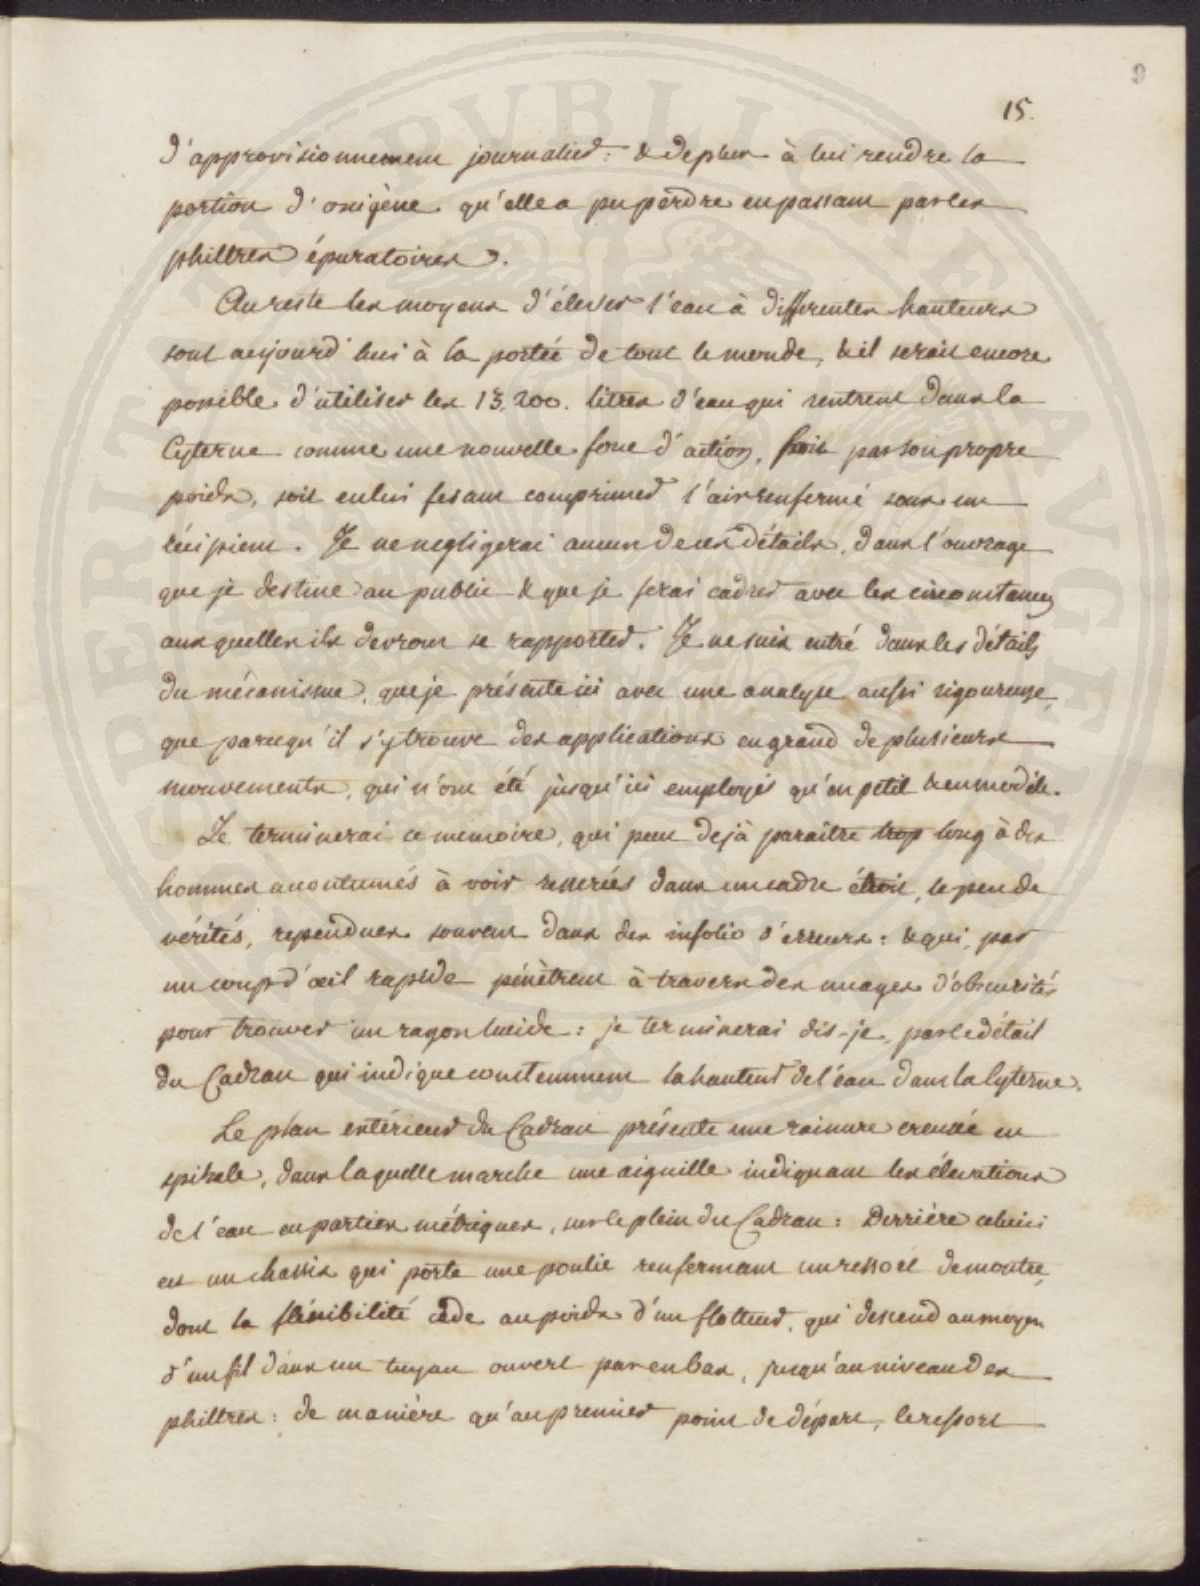 9
15.
d'approvisionnement journalier: & de plus à lui rendre la
portion d'oxigène qu'elle a pu perdre en passant par les
philtres épuratoires.
Au reste les moyens d'élever l'eau à differentes hauteurs
sont aujourd'hui à la portée de tout le monde, & il serait encore
possible d'utiliser les 13,200. litres d'eau qui rentrent dans la
Cyterne comme une nouvelle force d'action, soit par son propre
poids, soit en lui fesant comprimer l'air renfermé sous un
récipient. Je ne negligerai aucun de ces détails, dans l'ouvrage
que je destine au public & que je ferai cadrer avec les circonstances
auxquelles ils devront se rapporter. Je ne suis entré dans les détails
du mécanisme, que je présente ici avec une analyse aussi rigoureuse,
que parcequ'il s'y trouve des applications en grand de plusieurs
mouvements, qui n'ont été jusqu'ici employés qu'en petit & en modèle.
Je terminerai ce mémoire, qui peut dejà paraître trop long à des
hommes accoutumés à voir resserrées dans un cadre étroit, le peu de
vérités, rependues souvent dans des infolio d'erreurs: & qui, par
un coup d'œil rapide pénètrent à travers des nuages d'obscurités
pour trouver un rayon lucide: je terminerai dis-je, par le détail
du Cadran qui indique constemment la hauteur de l'eau dans la Cyterne.
Le plan extérieur du Cadran présente une rainure creusée en
spirale, dans laquelle marche une aiguille indiquant les élevations
de l'eau en parties métriques, sur le plein du Cadran: Derrière celui ci
est un chassis qui porte une poulie renfermant un ressort de montre,
dont la fléxibilité cède au poids d'un flotteur, qui descend au moyen
d'un fil dans un tuyau ouvert par en bas, jusqu'au niveau des
philtres: de manière qu'au premier point de départ, le ressort
BIBLIOTHECAE PUBLICAE